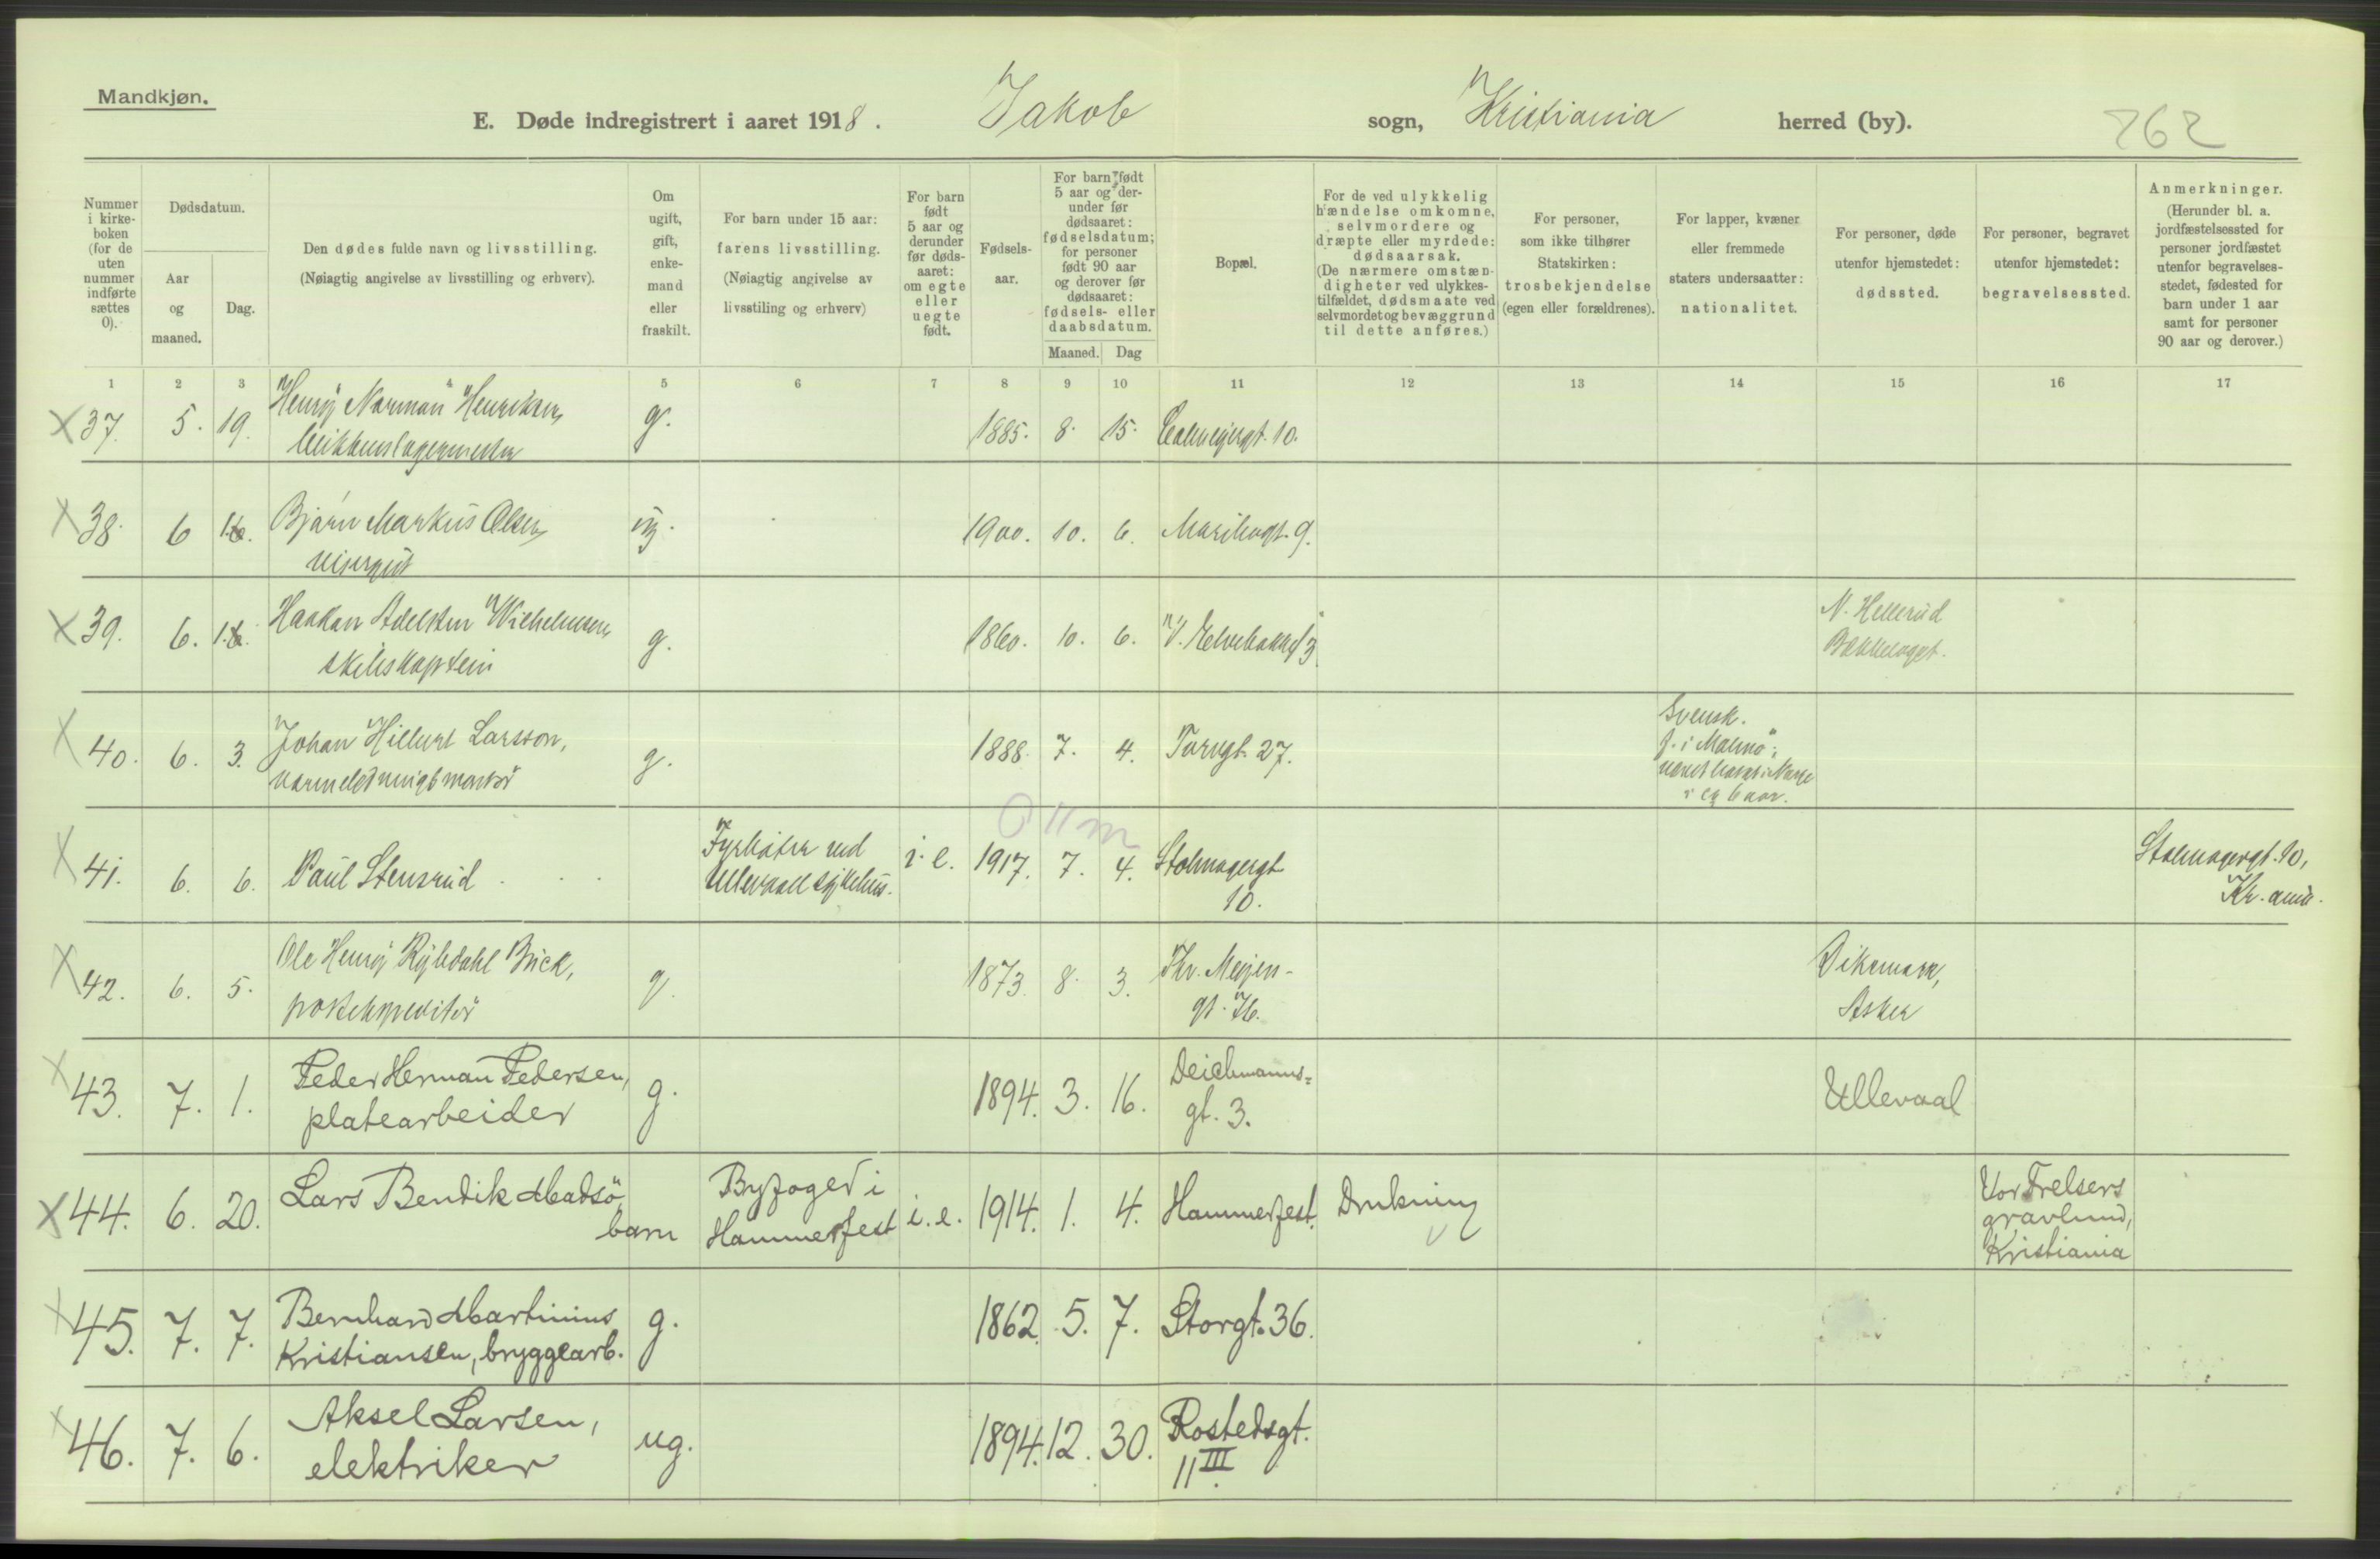 Mandkjøn.
E. Døde indregistrert i aaret 1918. Jakob sogn, Kristiania herred (by). 262
Nummer i kirke-boken (for de uten nummer indførte sættes 0).
Dødsdatum.
Aar og maaned.
Dag.
Den dødes fulde navn og livsstilling.
(Nøiagtig angivelse av livsstilling og erhverv).
Om ugift, gift, enke-mand eller fraskilt.
For barn under 15 aar:
farens livsstilling.
(Nøiagtig angivelse av
livsstiling og erhverv)
For barn født 5 aar og derunder før døds-aaret: om egte eller uegte født.
Fødsels-aar.
For barn født 5 aar og der-under før dødsaaret: fødselsdatum; for personer født 90 aar og derover før dødsaaret: fødsels- eller daabsdatum.
Maaned. Dag
Bopæl.
For de ved ulykkelig hændelse omkomne, selvmordere og dræpte eller myrdede: dødsaarsak. (De nærmere omstæn-digheter ved ulykkes-tilfældet, dødsmaate ved selvmordet og bevæggrund til dette anføres.)
For personer, som ikke tilhører Statskirken: trosbekjendelse (egen eller forældrenes).
For lapper, kvæner eller fremmede staters undersaatter: nationalitet.
For personer, døde utenfor hjemstedet: dødssted.
For personer, begravet utenfor hjemstedet: begravelsessted.
Anmerkninger.
(Herunder bl. a. jordfæstelsessted for personer jordfæstet utenfor begravelses-stedet, fødested for barn under 1 aar samt for personer 90 aar og derover.)
1 2 3 4 5 6 7 8 9 10 11 12 13 14 15 16 17
X 37. 5. 19. Henry Norman Henriksen, g. 1885. 8. 15. Calmeyergt. 10.
blikkenslagermester
X 38. 6 Bjarn Markus Olsen, ug. 1900. 10. 6. Maribogt. 9.
visergut
X 39. 6. Haakan Adelsten Wilhelmsen, g. 1860. 10. 6. V. Elvebakke 3 N. Hellerud
skibskaptein Bækkelaget.
X 40. 6. 3. Johan Hillert Larsson, g. 1888. 7. 4. Torvgt. 27. Svensk.
varmeledningsmontør f. i Malmö;
været bosat i Norge
i 6 aar.
X 41. 6. 6. Paul Stensrud Fyrbøter ved i.e. 1917. 7. 4. Stolmagergt Stolmagergt. 10,
Ullevaall sykehus. 10. Kr.ania.
X 42. 6. 5. Ole Henry Rybdahl Brick, g. 1873. 8. 3. Thv. Meyers- Dikemark,
postekspeditør gt. 76. Asker
X 43. 7. 1. Peder Herman Pedersen, g. 1894. 3. 16. Deichmanns= Ullevaal
platearbeider gt. 3.
X 44. 6. 20. Lars Bendik Madsö, Byfoged i i.e. 1914. 1. 4. Hammerfest. Drukning Vor Frelsers
barn Hammerfest gravlund,
Kristiania
X 45. 7. 7. Bernhard Martinius g. 1862. 5. 7. Storgt. 36.
Kristiansen, bryggearb.
X 46. 7. 6. Aksel Larsen, ug. 1894. 12. 30. Rostedsgt.
elektriker 11 III